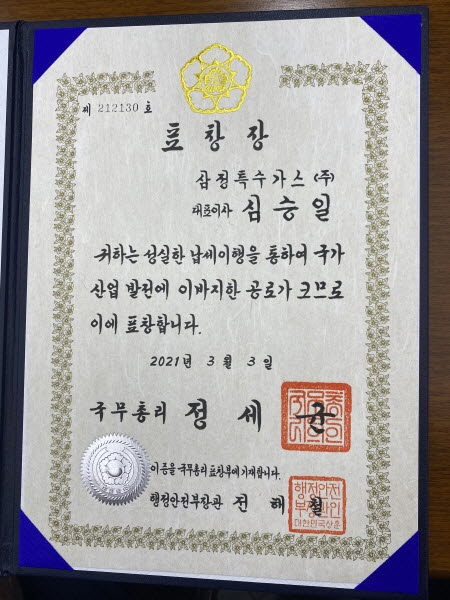 제 212130 호
표 창 장
삼정특수가스(주)
대표이사 심승일
귀하는 성실한 납세이행을 통하여 국가
산업 발전에 이바지한 공로가 크므로
이에 표창합니다.
2021년 3월 3일
국무총리 정세균
이 증을 국무총리 표창부에 기재합니다.
행정안전부장관 전해철
행정안전
부장관인
대한민국상훈